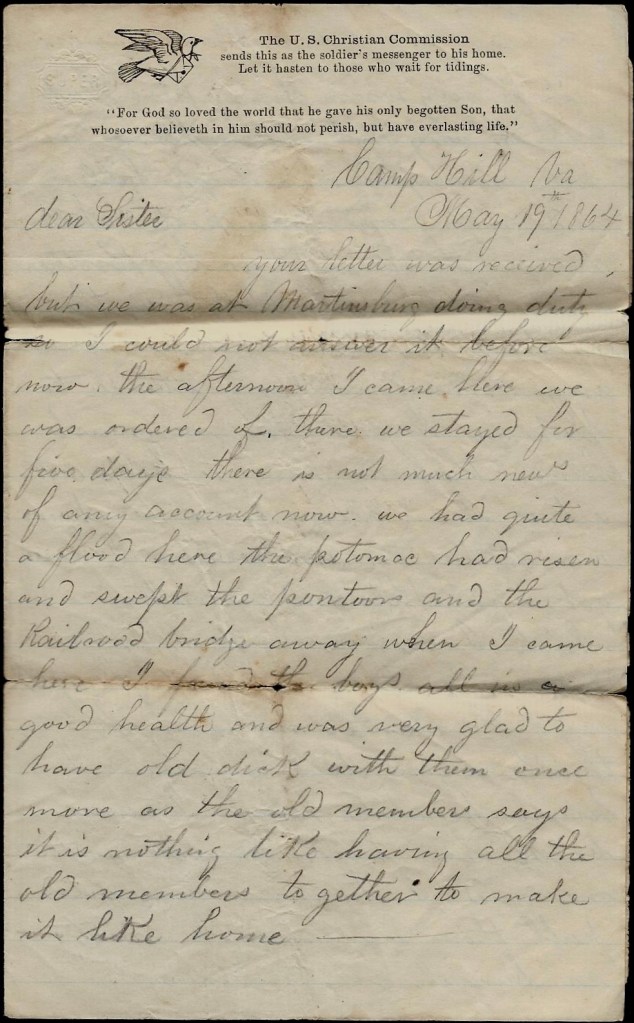 The U. S. Christian Commission
sends this as the soldier's messenger to his home.
Let it hasten to those who wait for tidings.
"For God so loved the world that he gave his only begotten Son, that
whosoever believeth in him should not perish, but have everlasting life."
Camp Hill Va
dear Sister May 19th 1864
your letter was received
but we was at Martinsburg doing duty
so I could not answer it before
now. the afternoon I came here we
was ordered of. there we stayed for
five days there is not much news
of any account now. we had quite
a flood here the potomac had risen
and swept the pontoon and the
Railroad bridge away when I came
here I found the boys all in a
good health and was very glad to
have old dick with them once
more as the old members says
it is nothing like having all the
old members to gether to make
it like home